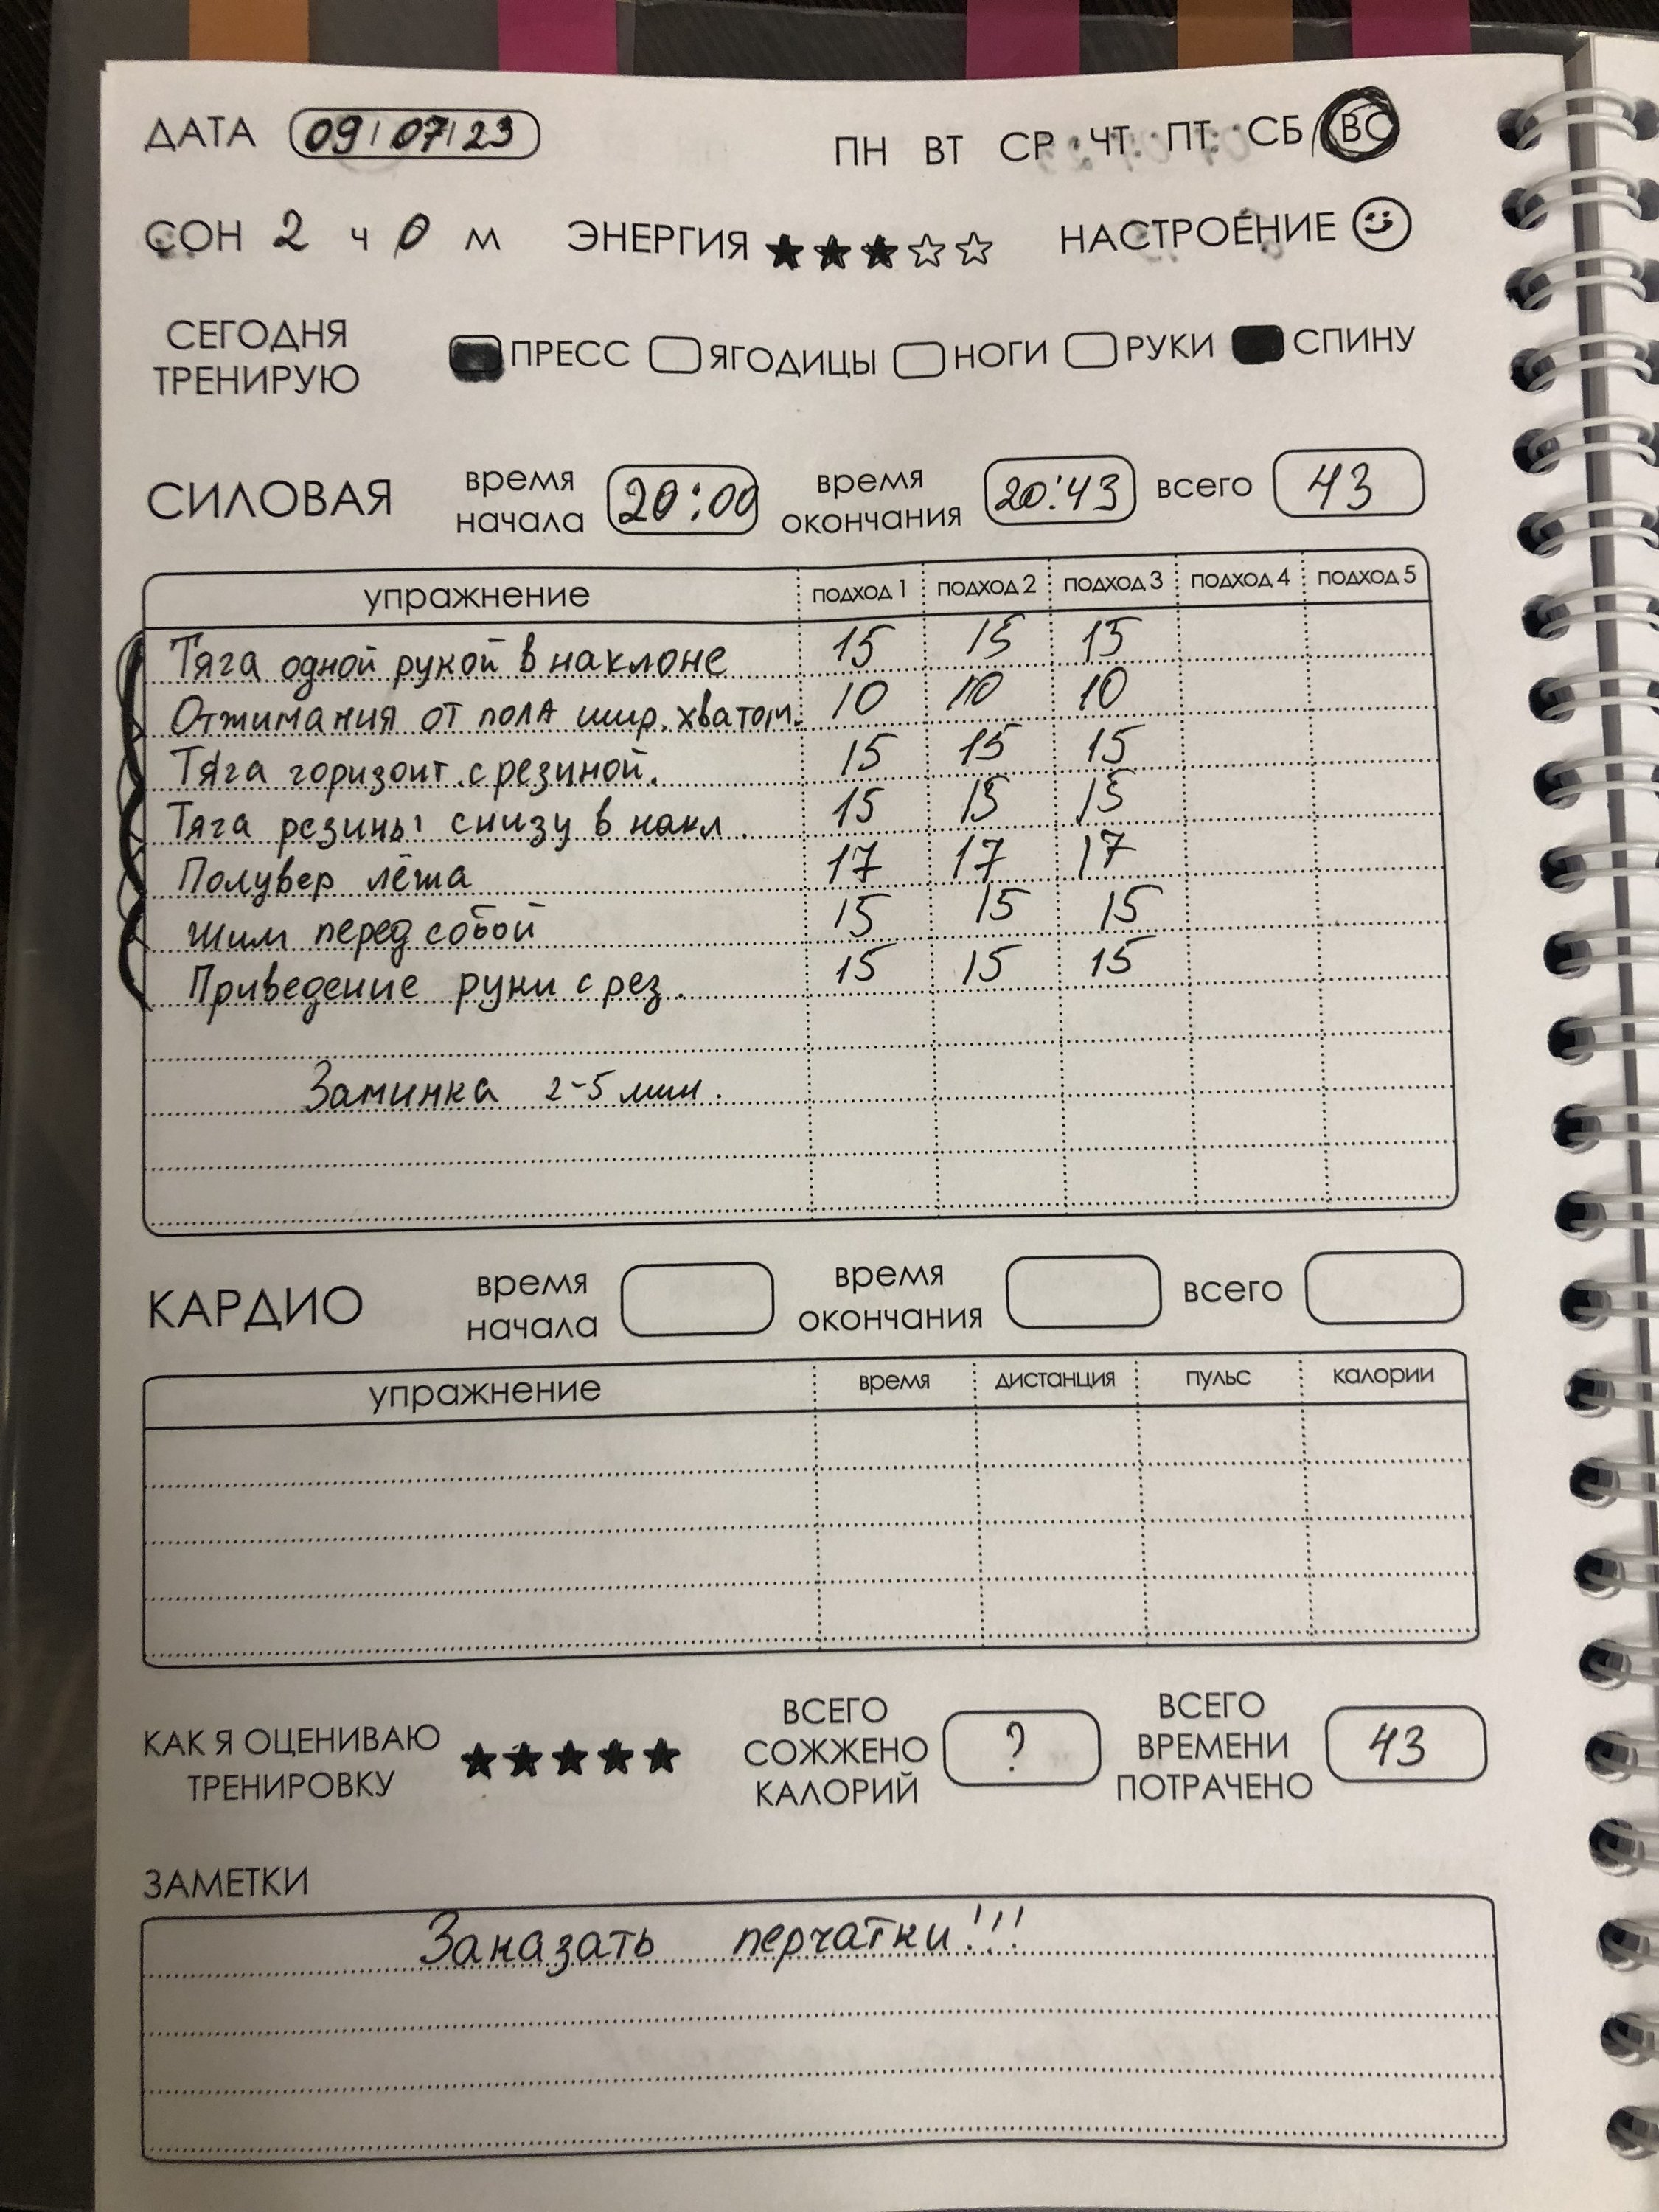 ДАТА 09/07/23 ПН ВТ СР ЧТ ПТ СБ ВС
СОН 2 ч 0 м ЭНЕРГИЯ ★★★☆☆ НАСТРОЕНИЕ
СЕГОДНЯ ТРЕНИРУЮ ПРЕСС ЯГОДИЦЫ НОГИ РУКИ СПИНУ
СИЛОВАЯ время начала 20:00 время окончания 20:43 всего 43
упражнение подход 1 подход 2 подход 3 подход 4 подход 5
Тяга одной рукой в наклоне 15 15 15
Отжимания от пола шир. хватом. 10 10 10
Тяга горизонт. с резиной. 15 15 15
Тяга резины снизу в накл. 15 15 15
Полувер лёжа 17 17 17
Жим перед собой 15 15 15
Приведение руки с рез. 15 15 15
Заминка 2-5 мин.
КАРДИО время начала время окончания всего
упражнение время дистанция пульс калории
КАК Я ОЦЕНИВАЮ ТРЕНИРОВКУ ★★★★★ ВСЕГО СОЖЖЕНО КАЛОРИЙ ? ВСЕГО ВРЕМЕНИ ПОТРАЧЕНО 43
ЗАМЕТКИ
Заказать перчатки!!!